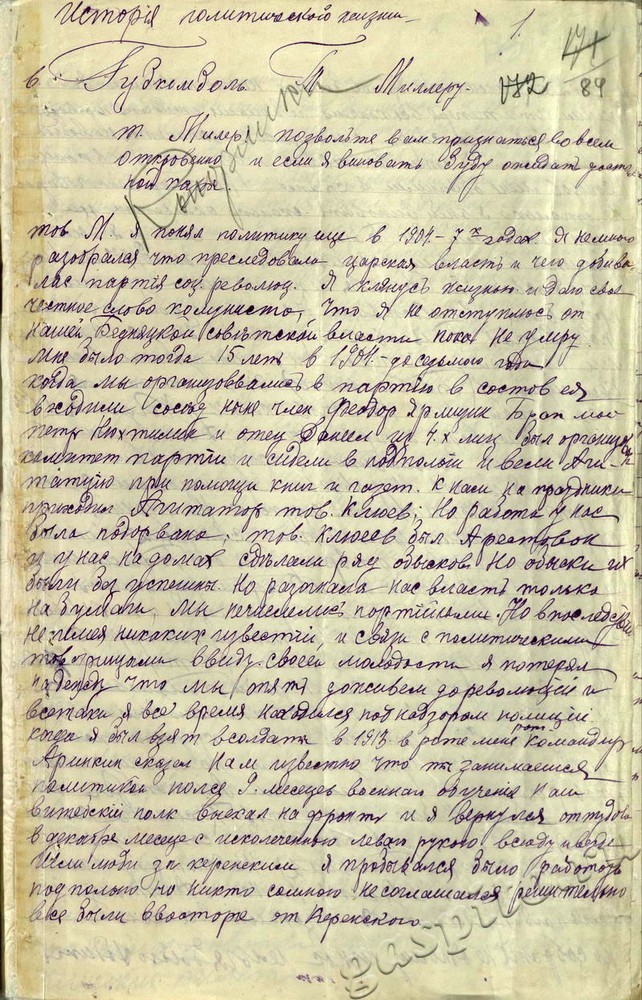 Исторія политической жизни
1.
471
782 84
в Губкомболь Т Миллеру.
т. Милер позвольте вам признаться во всем
откровенно и если я виноватъ буду ожидать
ной кары.
тов М я понял политику еще в 1904-7х годах. Я немного
разобрался что преследовала царская власть и чего добива
лас партія соц. революц. Я клянусь жизнью и даю свое
честное слово комуниста, что я не отступлюсь от
нашей Бедняцкой совѣтской власти пока не умру
мне было тогда 15 летъ в 1904.- до седьмого года
когда мы организоввались в партію в состов ея
входили сосед ныне член Феодор Ярмизин Брат мой
петр и отец из 4.х лиц был организ
комитет партіи и сидели в подпольи и вели Аги-
татцию при помощи книг и газет. К нам на праздники
приходил Агитатор тов. Клюев; Но работа у нас
была подорвана, тов. Клюев был Арестован
и у нас на домах сдѣлали ряд обысков. Но обыски их
были без успешны. Но разогнала нас власть только
на бумаги, мы нечислелись портійными. Но впоследствіи
неимея никаких известій, и связи с политическими
товорищами ввиду своей молодости я потерял
надежду что мы опять доживем до революціи и
всетаки я все время находился под надзором полиціи
когда я был взят в солдаты в 1913 в роте мене рот. Командир
Аринкин сказал нам известно что ты занимаешся
политикой после 9. месецев военнаго обучения наш
витебскій полк выехал на фронт и я вернулся оттудова
в декабре месеце с исколеченной левой рукой всюду и везде
Шли люди за керенским я пробывался было работоть
подпольно но никто сомною несоглашался решительно
все были в восторге от Керенского.
gaspiko.ru